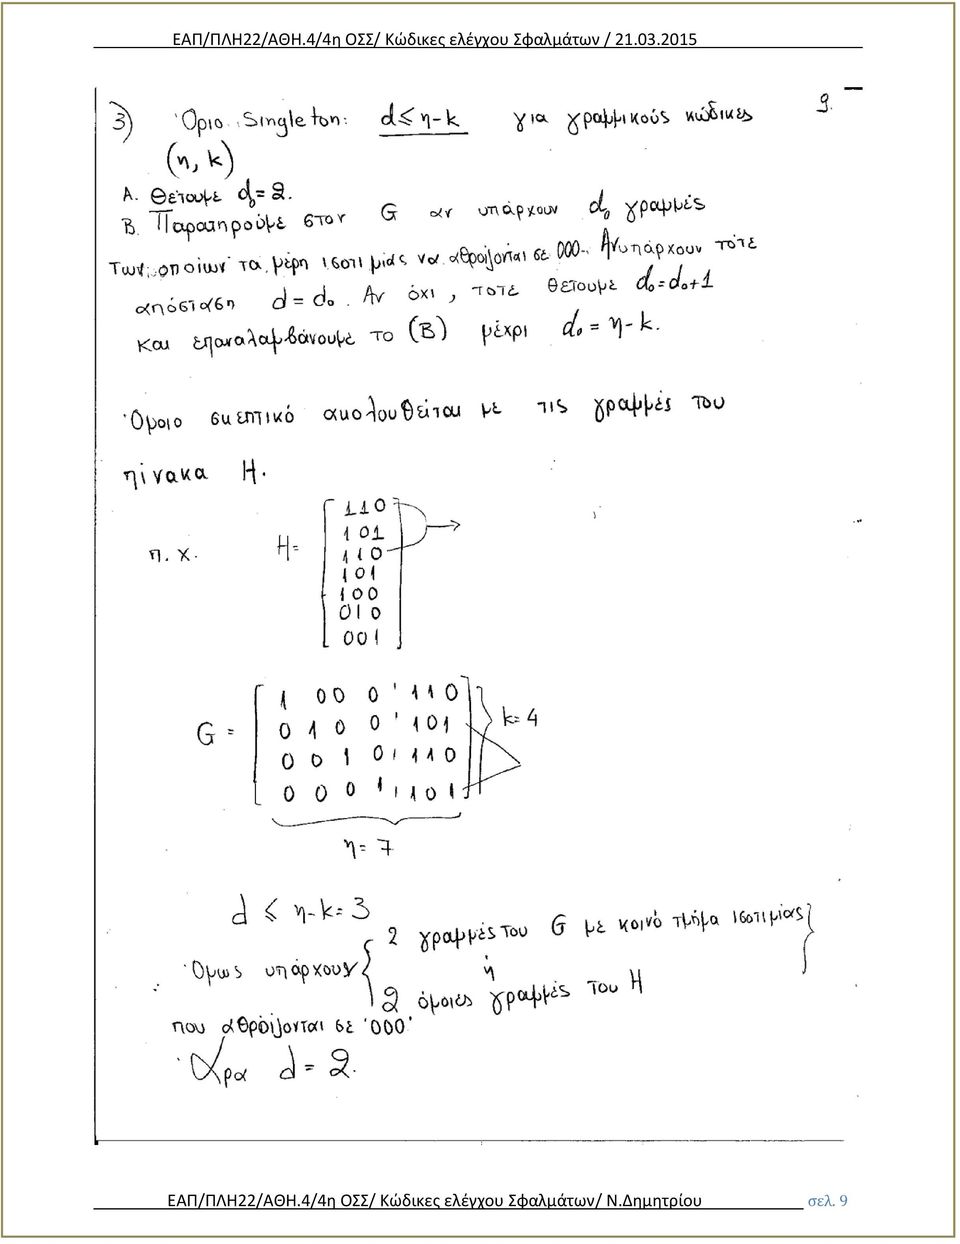 ΕΑΠ/ΠΛΗ22/ΑΘΗ.4/4η ΟΣΣ/ Κώδικες ελέγχου Σφαλμάτων / 21.03.2015
9.
3) Όριο Singleton: d ≤ η-k για γραμμικούς κώδικες
(η, k)
Α. Θέτουμε d₀=2.
Β. Παρατηρούμε στον G αν υπάρχουν d₀ γραμμές
των οποίων τα μέρη ισοτιμίας να αθροίζονται σε 000. Αν υπάρχουν τότε
απόσταση d = d₀. Αν όχι, τότε θέτουμε d₀=d₀+1
και επαναλαμβάνουμε το (Β) μέχρι d₀ = η-k.
Όμοιο σκεπτικό ακολουθείται με τις γραμμές του
πίνακα H.
110
101
π.χ. H= 110
101
100
010
001
1 0 0 0 110
G = 0 1 0 0 101 k=4
0 0 1 0 110
0 0 0 1 101
η=7
d ≤ η-k=3
2 γραμμές του G με κοινό τμήμα ισοτιμίας
Όμως υπάρχουν ή
2 όμοιες γραμμές του H
που αθροίζονται σε '000'
Άρα d=2.
ΕΑΠ/ΠΛΗ22/ΑΘΗ.4/4η ΟΣΣ/ Κώδικες ελέγχου Σφαλμάτων/ Ν.Δημητρίου σελ. 9